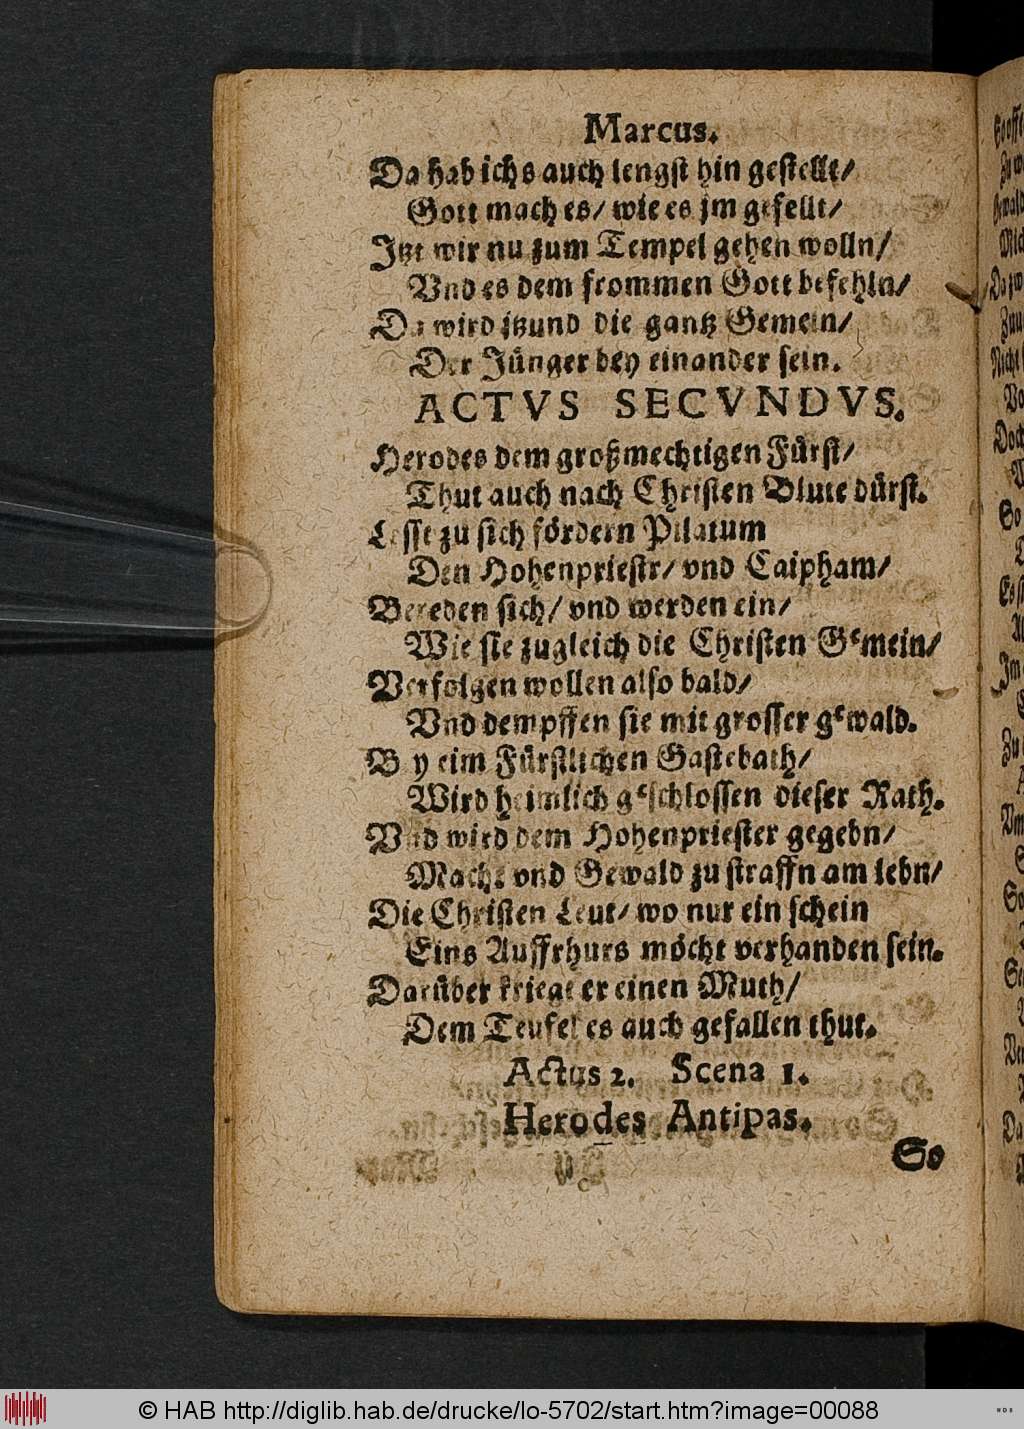 Marcus.
Da hab ichs auch lengst hin gestellt/
Gott mach es/ wie es jm gefellt/
Jtzt wir nu zum Tempel gehen wolln/
Vnd es dem frommen Gott befehln/
Da wird jtzund die gantz Gemein/
Der Jünger bey einander sein.
ACTVS SECVNDVS.
Herodes dem großmechtigen Fürst/
Thut auch nach Christen Blute dürst.
Lesst zu sich fördern Pilatum
Den Hohenpriestr/ vnd Caipham/
Bereden sich/ vnd werden ein/
Wie sie zugleich die Christen Gemein/
Verfolgen wollen also bald/
Vnd dempffen sie mit grosser gewald.
Bey eim Fürstlichen Gastebath/
Wird heimlich geschlossen dieser Rath.
Vnd wird dem Hohenpriester gegebn/
Macht vnd Gewald zu straffn am lebn/
Die Christen Leut/ wo nur ein schein
Eins Auffrhurs möcht verhanden sein.
Darüber kriegt er einen Muth/
Dem Teufel es auch gefallen thut.
Actus 2. Scena 1.
Herodes Antipas.
So
© HAB http://diglib.hab.de/drucke/lo-5702/start.htm?image=00088